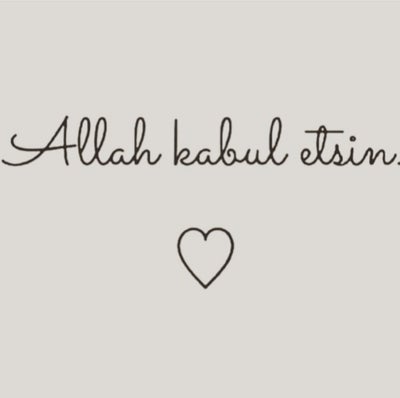 Allah kabul etsin.